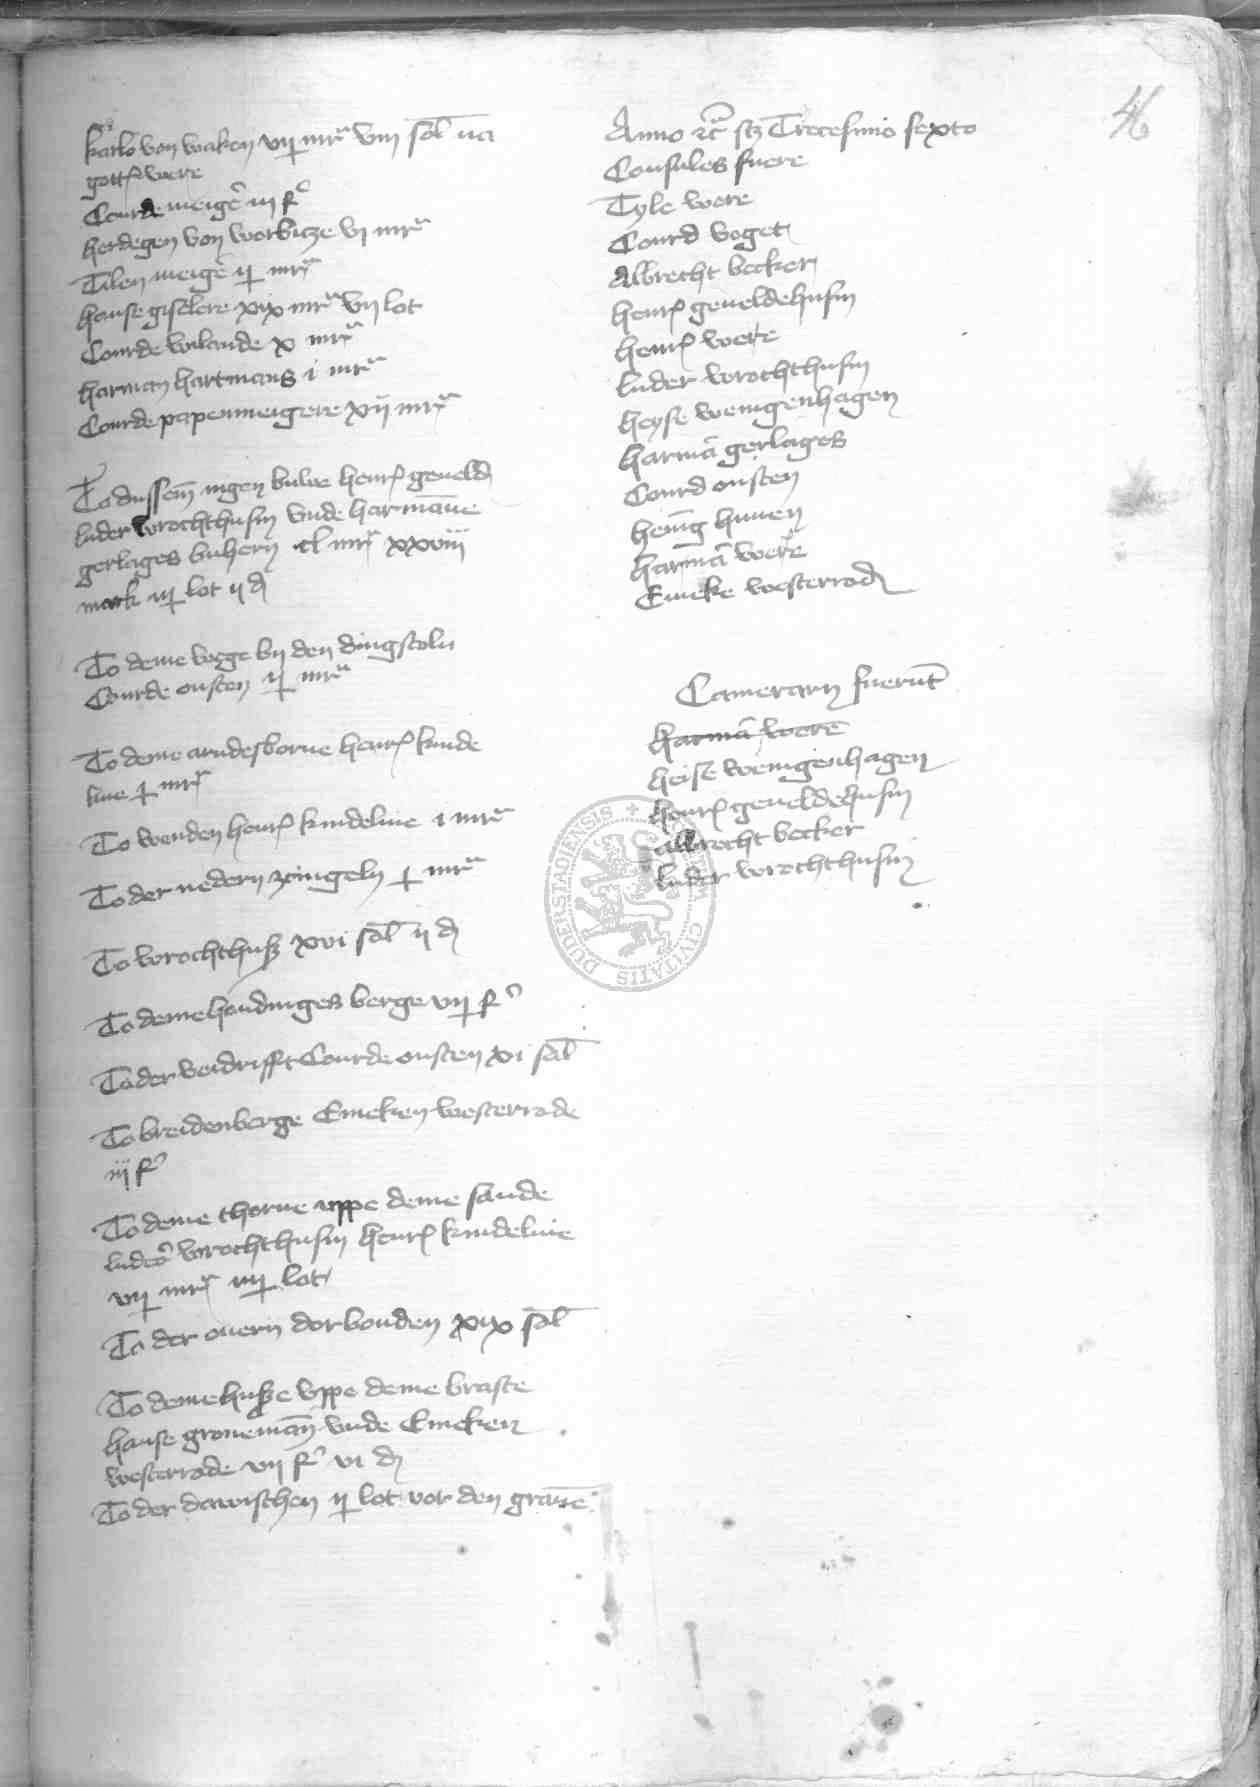 karlo von waken vij mrͣ viii sol̄ na
gotfr were
Courde meigeͬ iii fͬ
herdegen von worbicze vi mrͣ
Tilen meigeͬ ij mrͣ
hanse giselere xix mrͣ vij lot
Courde wilande x mrͣ
harman hartmans i mrͣ
Courde papenmeigere xij mrͣ
To dussem̄ nigen buwe henr̄ geueld
luder wrochthusin vnde harmānne
gerlages buhern cl mrͣ xxviii
mark iij lot ij ₰
To deme wege by den dingstoln
Courde onsten ij mrͣ
To deme arndesborne henr̄ kinde
line j mrͣ
To wenden henr̄ kindeline i mrͣ
To der nedern zcingeln j mrͣ
To wrochthusz xvi sol̄ ij ₰
To deme hondinges berge vij fͬ
To der veidrifft Courde onsten xi sol̄
To breidenberge Emeken westerrode
iij fͬ
To deme thorne uppe deme sande
ludeͬ wrochthusin henr̄ kindeline
vij mrͣ iiij lot
To der ouern dorbouden xix sol̄
To deme husze vppe deme braste
hanse gronemān vnde Emeken
westerrode vij fͬ vi ₰
To der dawischen ij lot vor den grauē
46
Anno rͨ sꝫ Trecesimo sexto
Consules fuere
Tyle were
Courd voget
Albrecht becker
henr̄ geueldehusin
henr̄ were
luder wrochthusin
heyse wenigenhagen
harmā gerlages
Courd onsten
henīg hunen
harmā were
Emeke westerrod
Camerarij fuerūt
harmā were
heise wenigenhagen
henr̄ geueldehusin
albrecht becker
luder wrochthusin
DUDERSTADIENSIS CIVITATIS